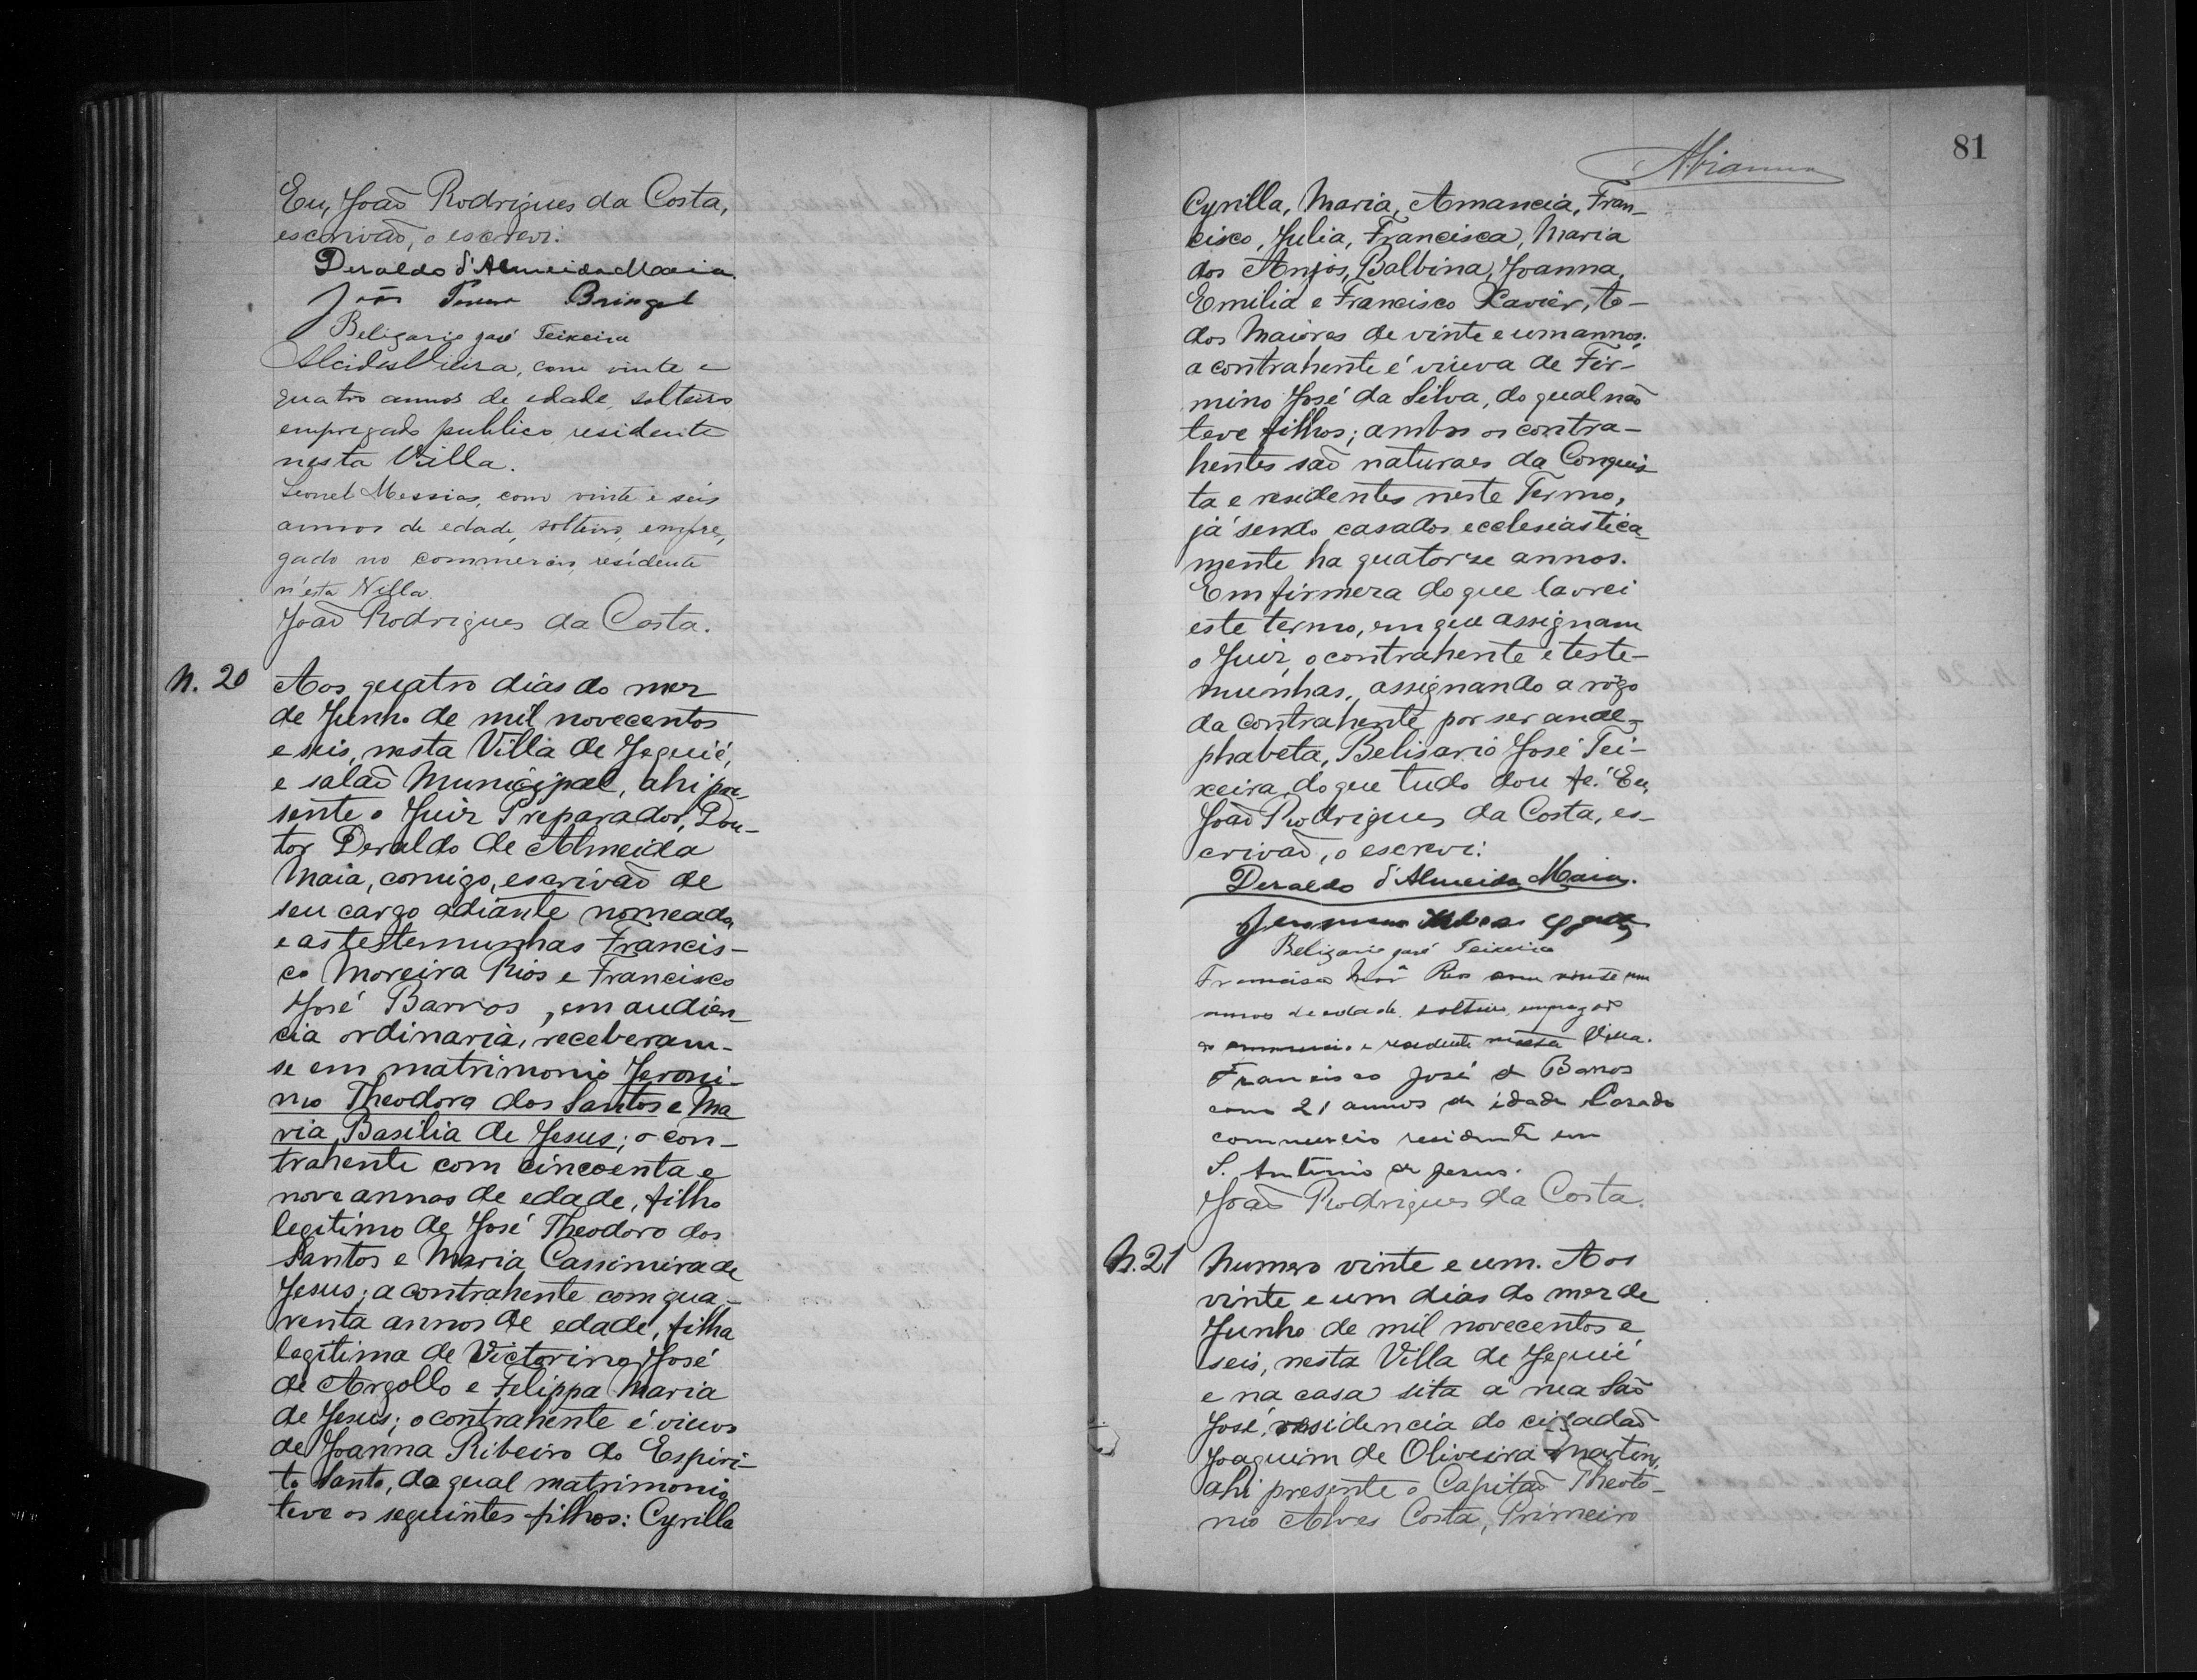 Eu, João Rodrigues da Costa,
escrivão, o escrevi.
Deraldo d'Almeida Maia.
João Bringel
Beligario José Teixeira
Alcides Vieira, com vinte e
quatro annos de edade, solteiro
empregado publico residente
nesta Villa.
Leonel Messias, com vinte e seis
annos de edade, solteiro, empre,
gado no commercio, residente
n'esta Villa.
João Rodrigues da Costa.
N. 20
Aos quatro dias do mez
de Junho de mil novecentos
e seis, nesta Villa de Jequié,
e salão Municipal, ahi pre-
sente o Juiz Preparador, Dou-
tor Deraldo de Almeida
Maia, comigo, escrivão de
seu cargo adiante nomeado,
e as testemunhas Francis-
co Moreira Rios e Francisco
José Barros, em audien-
cia ordinaria, receberam-
se em matrimonio Jeroni-
mo Theodoro dos Santos e Ma
ria Basilia de Jesus; o con-
trahente com cincoenta e
nove annos de edade, filho
legitimo de José Theodoro dos
Santos e Maria Cassimira de
Jesus; a contrahente com qua-
renta annos de edade, filha
legitima de Victorino José
de Argollo e Felippa Maria
de Jesus; o contrahente é viuvo
de Joanna Ribeiro do Espiri-
to Santo, do qual matrimonio
teve os seguintes filhos: Cyrilla
81
Cyrilla, Maria, Amancia, Fran-
cisco, Julia, Francisca, Maria
dos Anjos, Balbina, Joanna,
Emilia e Francisco Xavier, to-
dos maiores de vinte e um annos;
a contrahente é viuva de Fir-
mino José da Silva, do qual não
teve filhos; ambos os contra-
hentes são naturaes da Conquis-
ta e residentes neste Termo,
já sendo casados ecclesiastica-
mente ha quatorze annos.
Em firmeza do que lavrei
este termo, em que assignam
o Juiz, o contrahente e teste-
munhas, assignando a rogo
da contrahente por ser anal-
phabeta, Belisario José Tei-
xeira, do que tudo dou fé. Eu,
João Rodrigues da Costa, es-
crivão, o escrevi.
Deraldo d'Almeida Maia.
Beligario José Teixeira
Francisco Rios com vinte um
annos de edade, solteiro, empregado
no commercio e residente nesta Villa.
Francisco José de Barros
com 21 annos de idade Casado
commercio residente em
S. Antonio de Jesus.
João Rodrigues da Costa.
N. 21
Numero vinte e um. Aos
vinte e um dias do mez de
Junho de mil novecentos e
seis, nesta Villa de Jequié
e na casa sita á rua São
José, residencia do cidadão
Joaquim de Oliveira Martins,
ahi presente o Capitão Theoto-
nio Alves Costa, Primeiro